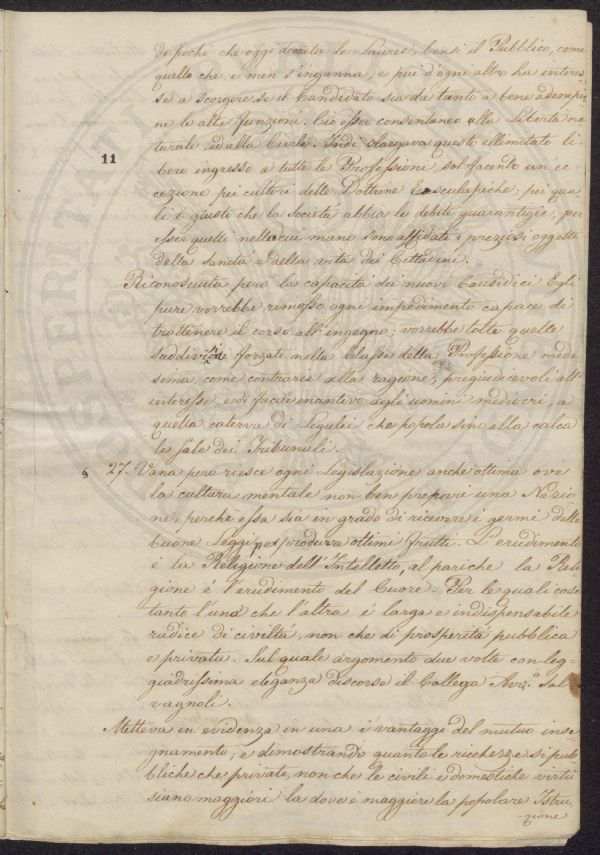 de pochi che oggi decreta le Lauree, bensì il Pubblico, come
quello che, e men s'inganna, e più d'ogni altro ha interes=
se a scorgere se il Candidato sia da tanto a bene adempir=
ne le alte funzioni. Ciò esser consentaneo alla Libertà na
turale ed alla Civile. Indi slargava questo illimitato li=
11
bero ingresso a tutte le Professioni, sol facendo un'ec=
cezione pei cultori delle Dottrine Esculapiche, pei qua
li è giusto che la Società abbia le debite guarantigie, per
esser quelli nella cui mano sono affidati i preziosi oggetti
della sanità e della vita dei Cittadini.
Riconosciuta però la capacità dei nuovi Causidici Egli
pure vorrebbe remosso ogni impedimento capace di
trattenere il corso all'ingegno; vorrebbe tolte quelle
suddivisioni forzate nella Classe della Professione mede
sima, come contrarie alla ragione, pregiudicevoli all'
interesse, e di facile incentivo agli uomini mediocri, a
quella caterva di Legulei che popola sino alla calca
le sale dei Tribunali.
§ 27. Vana però riesce ogni Legislazione anche ottima ove
la cultura mentale non ben prepari una Nazio
ne, perchè essa sia in grado di ricevere i germi delle
buone Leggi per produrre ottimi frutti. L'erudimento
è la Religione dell'Intelletto, al pari che la Reli
gione è l'erudimento del Cuore. Per le quali cose
tanto l'una che l'altra è larga e indispensabile
radice di civiltà, non che di prosperità pubblica
e privata. Sul quale argomento due volte con leg=
giadrissima eleganza discorse il Collega Avv.º Sal
vagnoli.
Metteva in evidenza in una i vantaggi del mutuo inse
gnamento, e dimostrando quanto le ricchezze sì pub=
bliche che private, non che le civili e domestiche virtù
siano maggiori la dove è maggiore la popolare Istru=
zione
POSTERITATI